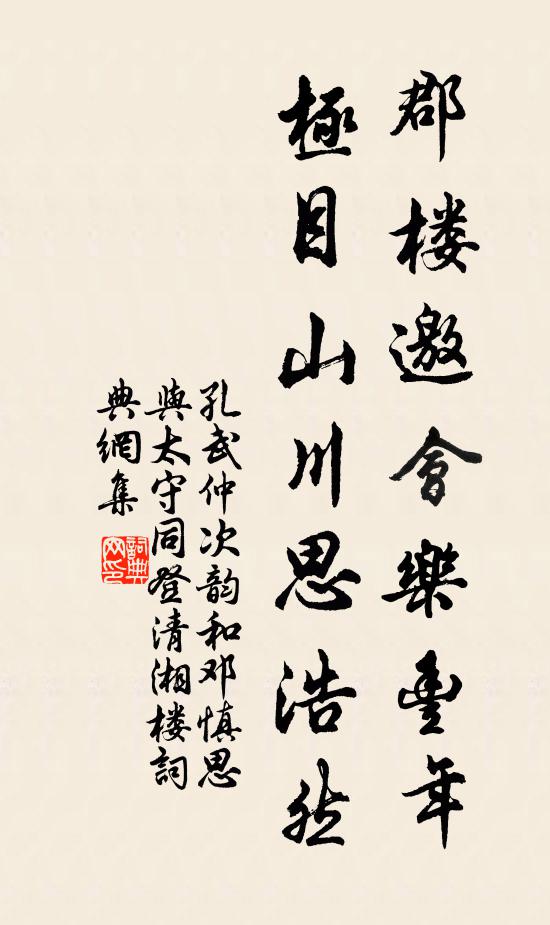 郡楼邀會樂豊年
極目山川思浩然
孔武仲次韵和邓慎思
與太守同登清湘楼詞
典網集
詞典
网印